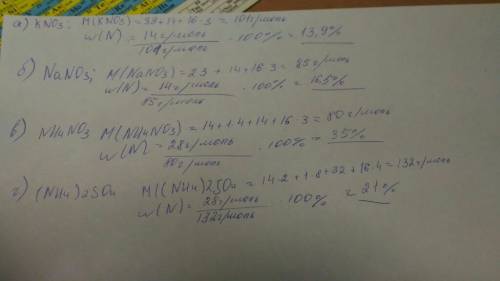 а) KNO3: M(KNO3)=39+14+16·3=101г/моль
w(N)=14г/моль/101г/моль ·100%=13,9%
б) NaNO3; M(NaNO3)=23+14+16·3=85г/моль
w(N)=14г/моль/85г/моль ·100%=16,5%
в) NH4NO3 M(NH4NO3)=14+1·4+14+16·3=80г/моль
w(N)=28г/моль/80г/моль ·100%=35%
г) (NH4)2SO4 M((NH4)2SO4=14·2+1·8+32+16·4=132г/моль
w(N)=28г/моль/132г/моль ·100%=21%